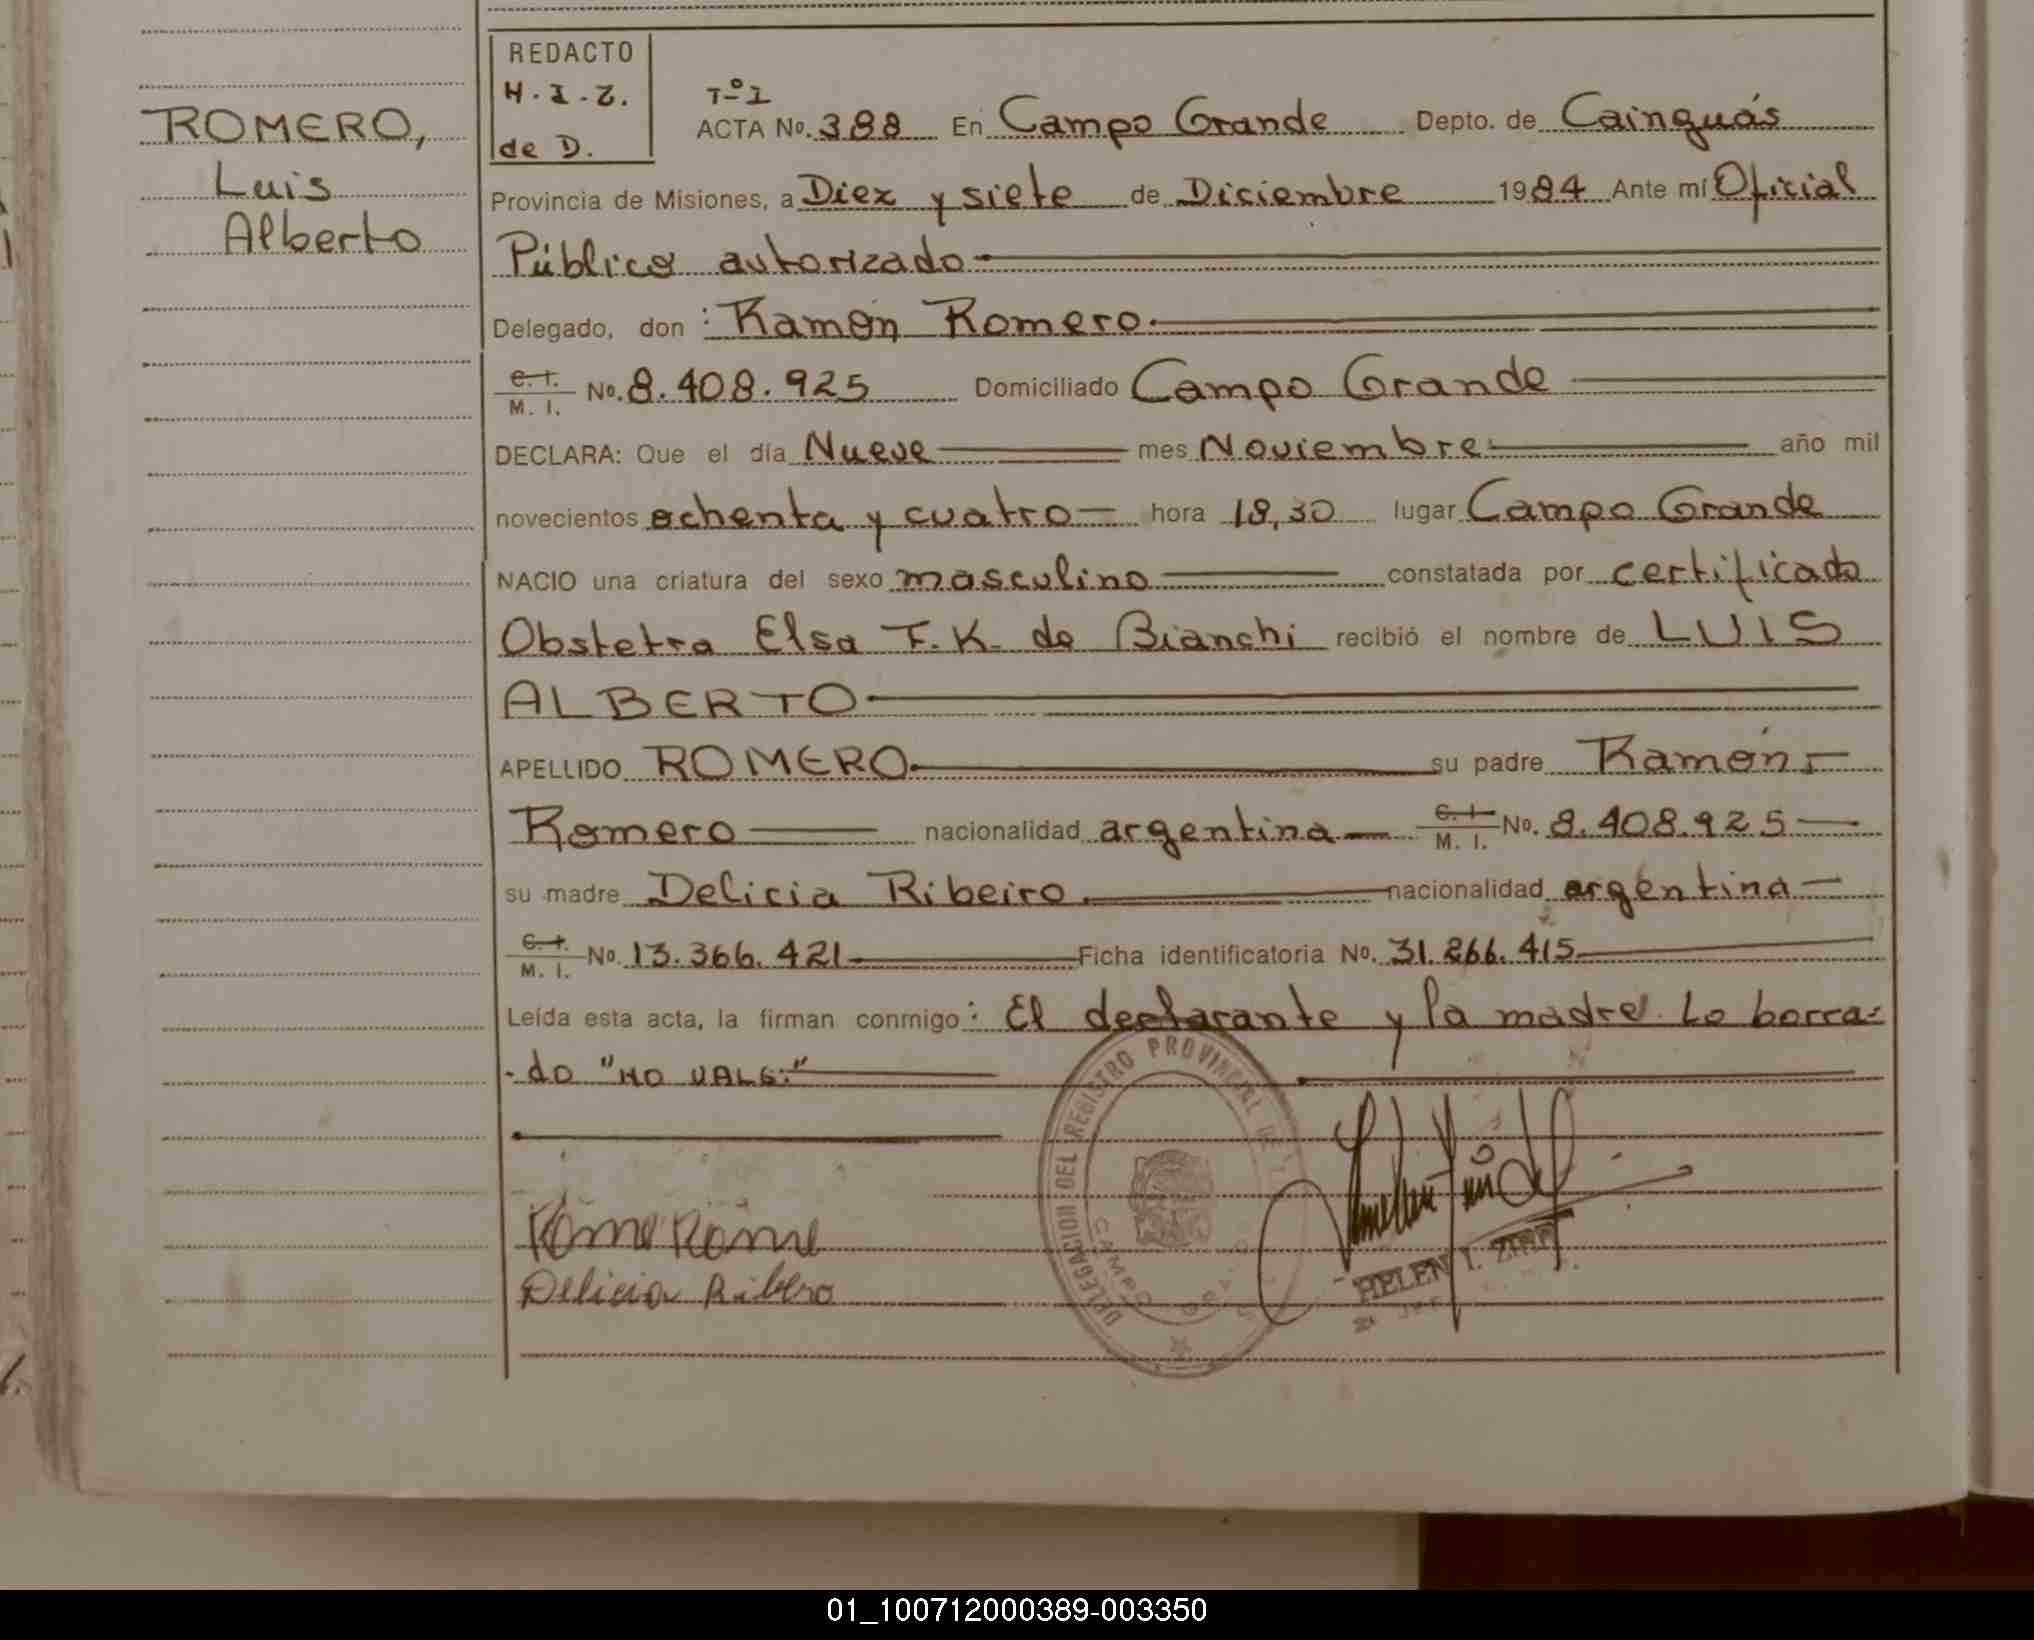 ROMERO,
Luis
Alberto
REDACTO
H.I.Z.
de D.
Tº I
ACTA No. 388 En Campo Grande Depto. de Cainguás
Provincia de Misiones, a Diez y siete de Diciembre 1984 Ante mí Oficial
Público autorizado
Delegado, don : Ramón Romero.
C.I. M. I. No. 8.408.925 Domiciliado Campo Grande
DECLARA: Que el día Nueve mes Noviembre año mil
novecientos ochenta y cuatro hora 18,30 lugar Campo Grande
NACIO una criatura del sexo masculino constatada por certificado
Obstetra Elsa F.K. de Bianchi recibió el nombre de LUIS
ALBERTO
APELLIDO ROMERO su padre Ramón
Romero nacionalidad argentina C.I. M. I. No. 8.408.925
su madre Delicia Ribeiro nacionalidad argentina
C.I. M. I. No. 13.366.421 Ficha identificatoria No. 31.266.415
Leída esta acta, la firman conmigo : El declarante y la madre. Lo borra-
-do "NO VALE."
DELEGACION DEL REGISTRO PROVINCIAL DE
CAMPO
Delicia Ribero
HELEN I.
01_100712000389-003350